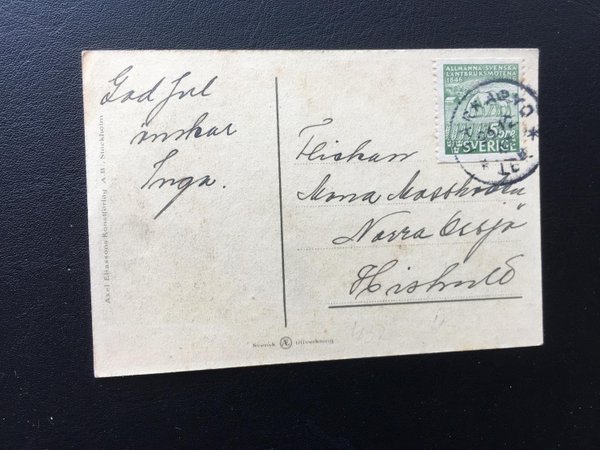 God Jul
önskar
Inga.
Axel Eliassons Konstförlag A. B. Stockholm
ALLMÄNNA SVENSKA
LANTBRUKSMÖTENA
1846
ÖRE
SVERIGE
Flickan
Mona
Norra
Hishult
Svensk Æ Tillverkning